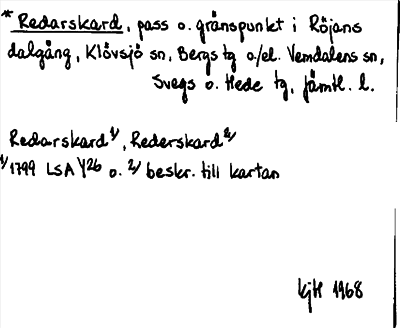 * Redarskard, pass o. gränspunkt i Röjans
dalgång, Klövsjö sn, Bergs tg o/el. Vemdalens sn,
Svegs o. Hede tg, Jämtl. l.
Redarskard 1), Rederskard 2)
1) 1799 LSA Y26 o. 2) beskr. till kartan
KJH 1968